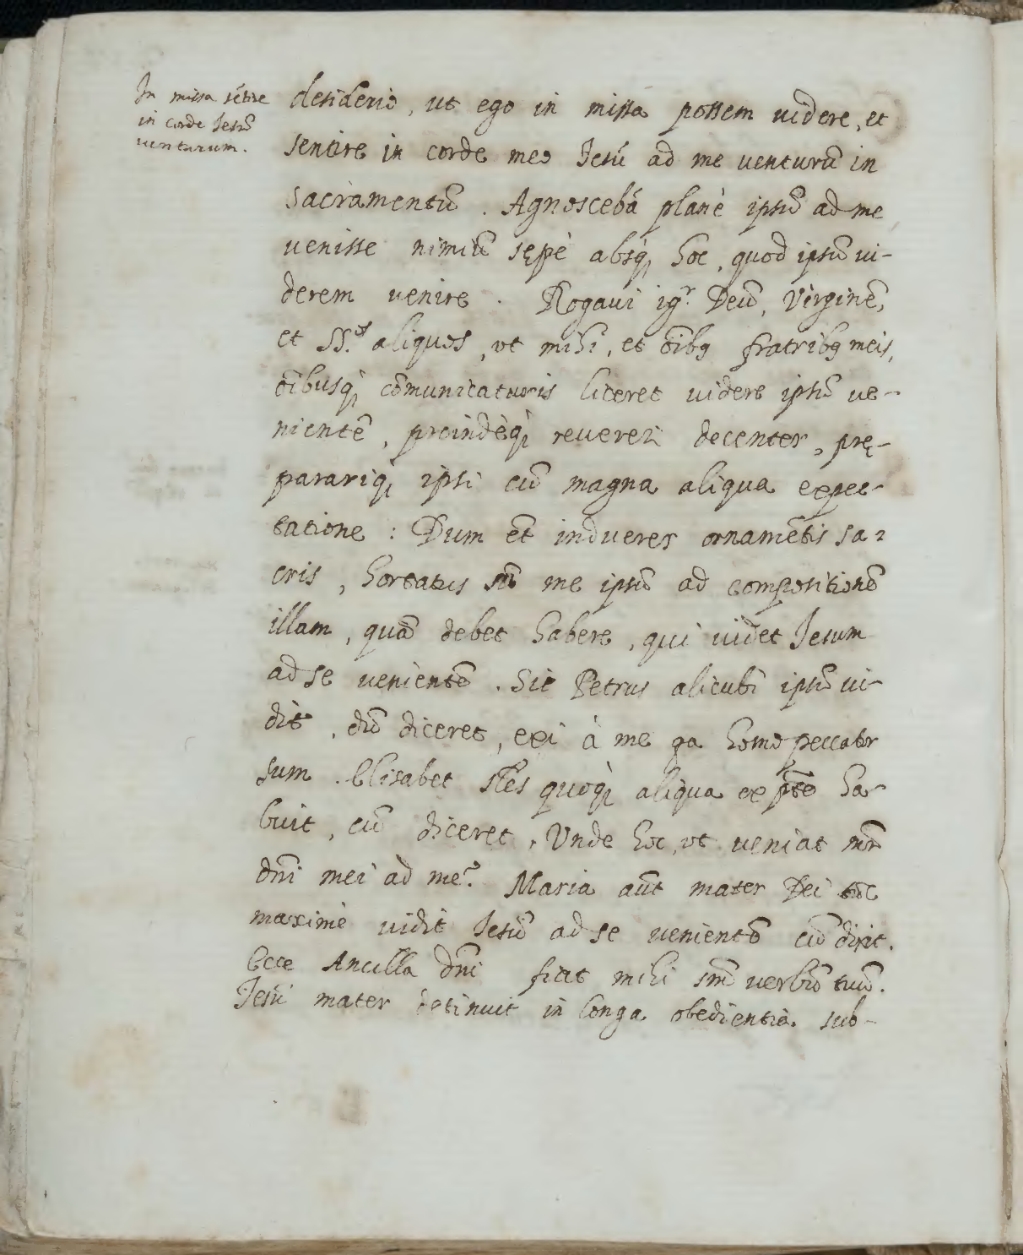 In missa sẽtire
in corde Jesũ
venturum.
desiderio, ut ego in missa possem videre, et
sentire in corde meo Jesũ ad me venturũ in
sacramentũ. Agnoscebã planè ipsũ ad me
venisse nimiũ sępè absq̃ hoc, quod ipsũ vi-
derem venire. Rogavi igr. Deũ, Virginẽ,
et SS.os aliquos, ut mihi, et õibq fratribq meis,
õibusq̃ cõmunicaturis liceret videre ipsũ ve-
nientẽ, proindèq̃ revereri decenter, prę-
parariq̃ ipsi cũ magna aliqua expec-
tatione: Dum et̃ induerer ornamẽtis sa-
cris, hortatus sũ me ipsũ ad compositionẽ
illam, quã debet habere, qui videt Jesum
ad se venientẽ. Sic Petrus alicubi ipsũ vi-
dit, dũ diceret, exi à me qa homo peccator
sum. Elisabet quoq̃ aliqua ex pte ha-
buit, cũ diceret, Unde hoc, ut veniat mr̃
dñi mei ad me? Maria aũt mater Dei
maximè vidit Jesũ ad se venientẽ cũ dixit.
Ecce Ancilla dñi fiat mihi sm̃ verbũ tuũ.
Jesũ mater detinuit in longa obedientia. sub-